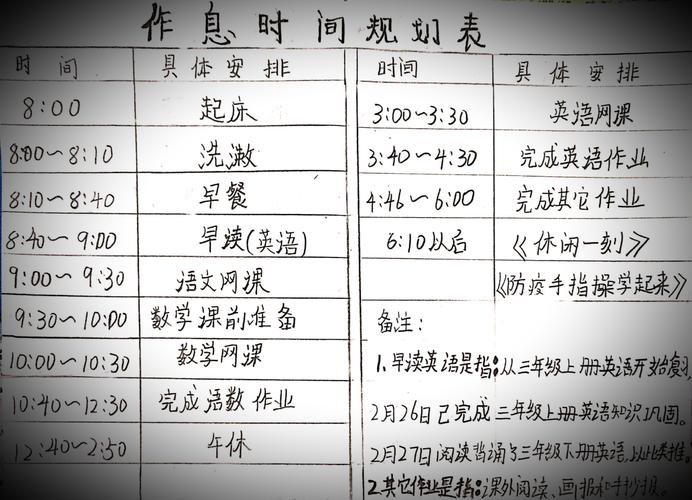 作息时间规划表
时间 具体安排
8:00 起床
8:00~8:10 洗漱
8:10~8:40 早餐
8:40~9:00 早读(英语)
9:00~9:30 语文网课
9:30~10:00 数学课前准备
10:00~10:30 数学网课
10:40~12:30 完成语数作业
12:40~2:50 午休
时间 具体安排
3:00~3:30 英语网课
3:40~4:30 完成英语作业
4:46~6:00 完成其它作业
6:10以后 《休闲一刻》
《防疫手指操学起来》
备注:
1.早读英语是指:从三年级上册英语开始复习
2月26日已完成三年级上册英语知识巩固。
2月27日阅读背诵三年级下册英语,以此类推。
2.其它作业是指:课外阅读、画报和手抄报。